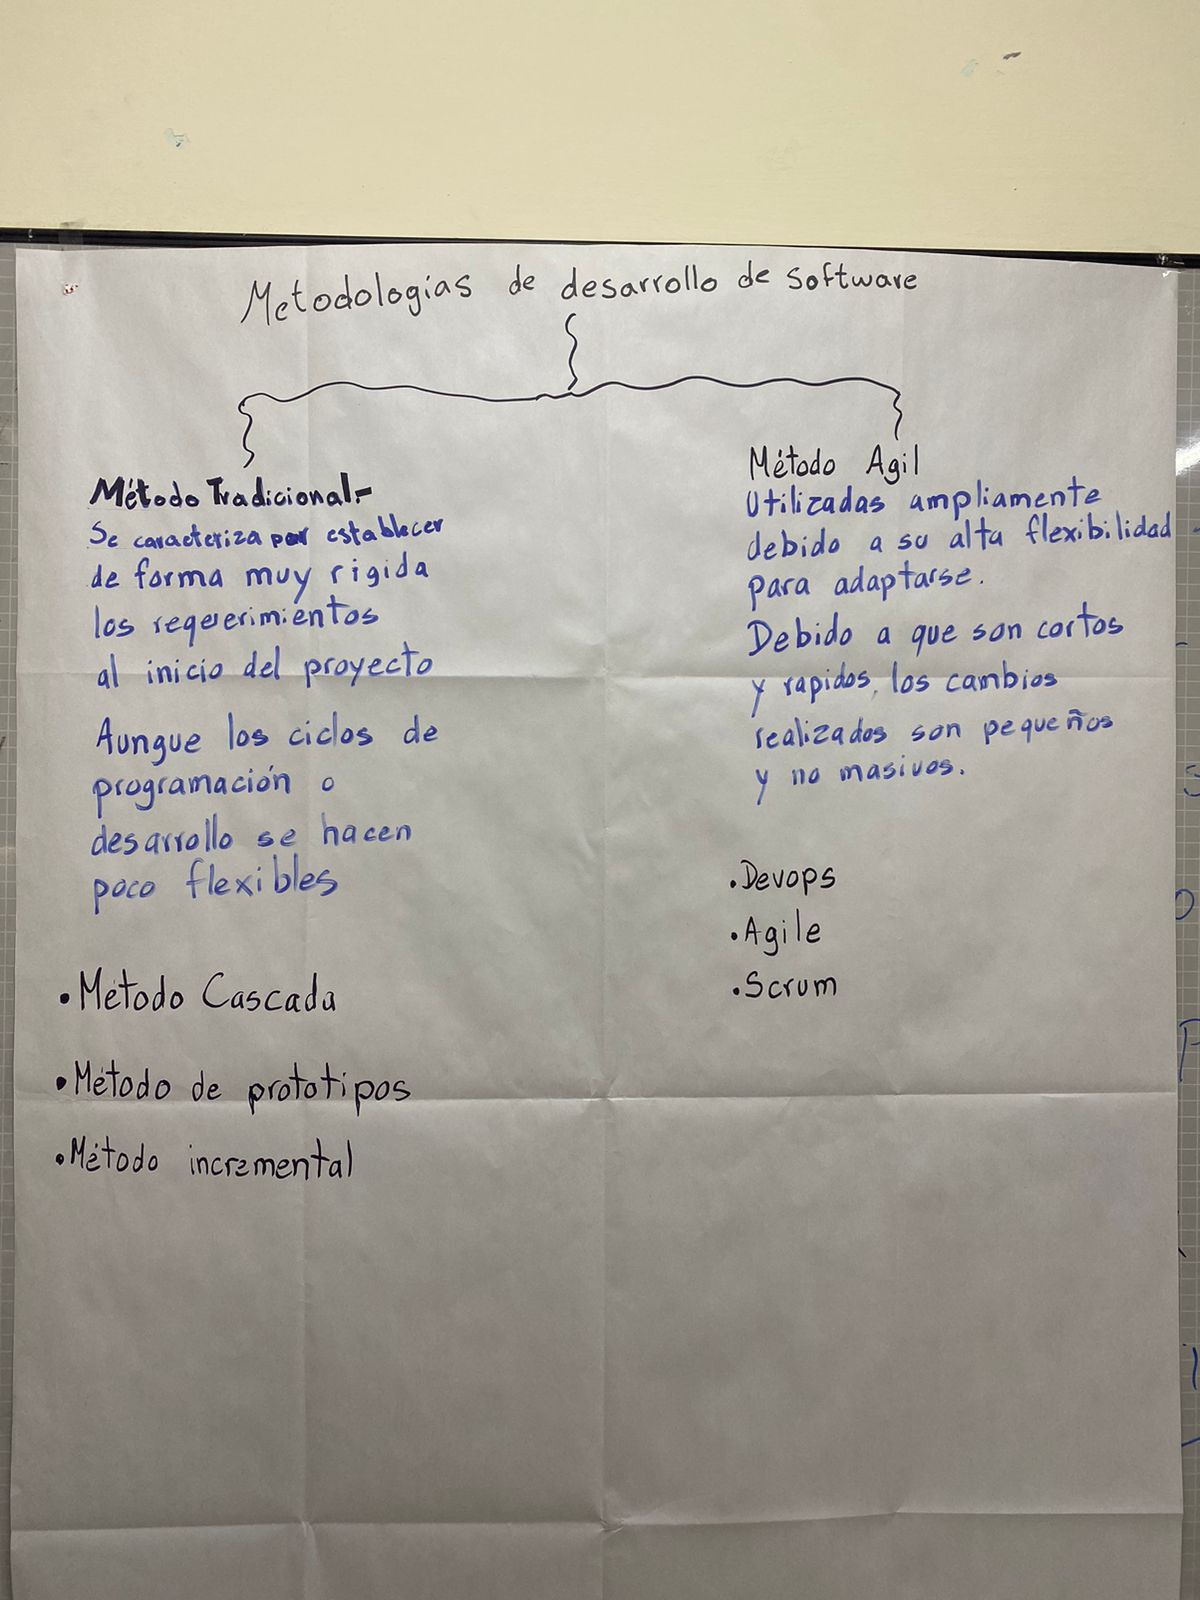 Metodologías de desarrollo de software
Método Tradicional.-
Se caracteriza por establecer
de forma muy rigida
los requerimientos
al inicio del proyecto
Aunque los ciclos de
programación o
desarrollo se hacen
poco flexibles
• Método Cascada
• Método de prototipos
• Método incremental
Método Agil
Utilizadas ampliamente
debido a su alta flexibilidad
para adaptarse.
Debido a que son cortos
y rapidos, los cambios
realizados son pequeños
y no masivos.
• Devops
• Agile
• Scrum